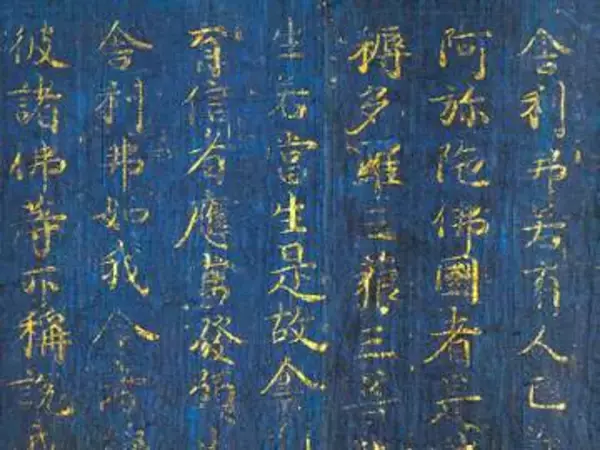 舍利弗若有人已
阿弥陀佛國者是
耨多羅三藐三菩
生若當生是故舍利
有信者應當發願
舍利弗如我今者
彼諸佛等亦稱說